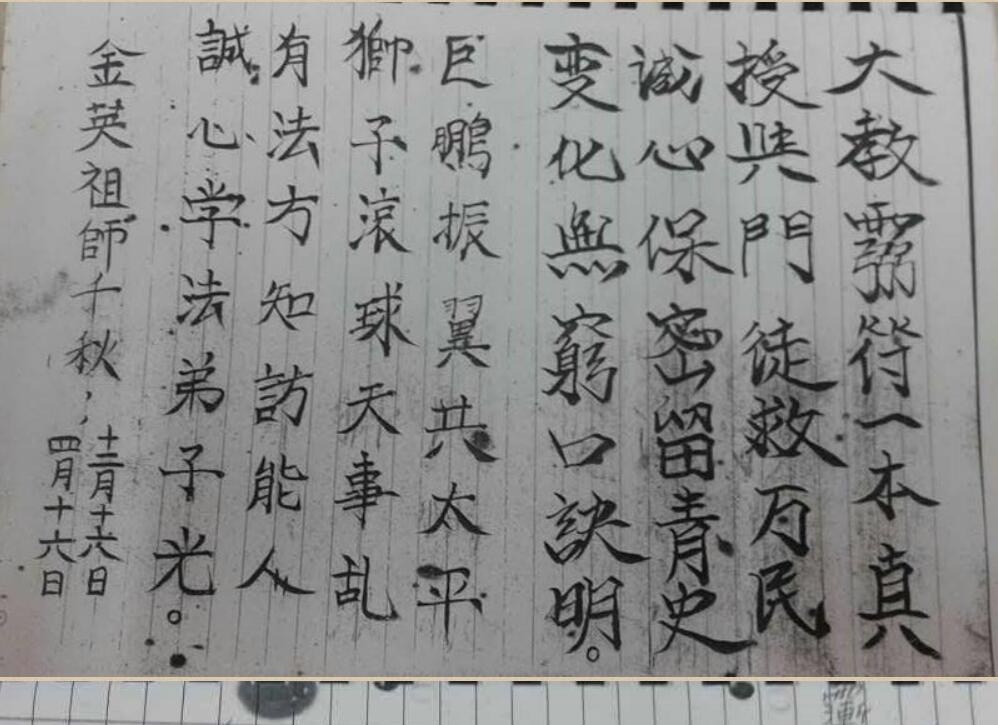 大教雪符一本真
授與門徒救万民
诚心保密留青史
变化無窮口訣明。
巨鵬振翼共太平
獅子滚球天事乱
有法方知訪能人
誠心学法弟子光。
金英祖師千秋,
十二月十六日
四月十六日